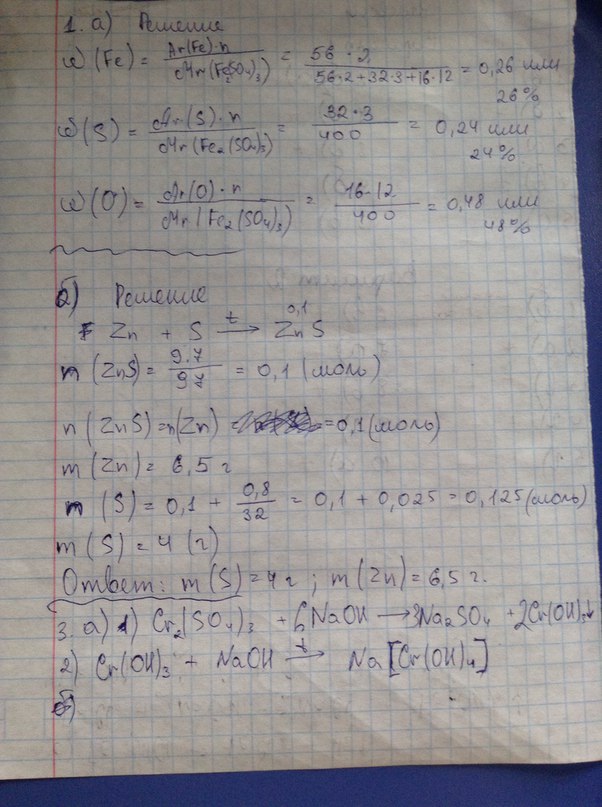 1. а) Решение
ω(Fe) = Ar(Fe)·n / Mr(Fe2(SO4)3) = 56·2 / 56·2+32·3+16·12 = 0,26 или 26%
ω(S) = Ar(S)·n / Mr(Fe2(SO4)3) = 32·3 / 400 = 0,24 или 24%
ω(O) = Ar(O)·n / Mr(Fe2(SO4)3) = 16·12 / 400 = 0,48 или 48%
б) Решение
0,1
Zn + S →t ZnS
n(ZnS) = 9.7 / 97 = 0,1 (моль)
n(ZnS) = n(Zn) = 0,1 (моль)
m(Zn) = 6,5 г
n(S) = 0,1 + 0,8 / 32 = 0,1 + 0,025 = 0,125 (моль)
m(S) = 4 (г)
Ответ: m(S) = 4 г; m(Zn) = 6,5 г.
3. а) 1) Cr2(SO4)3 + 6NaOH → 3Na2SO4 + 2Cr(OH)3↓
2) Cr(OH)3 + NaOH →t Na[Cr(OH)4]
б)